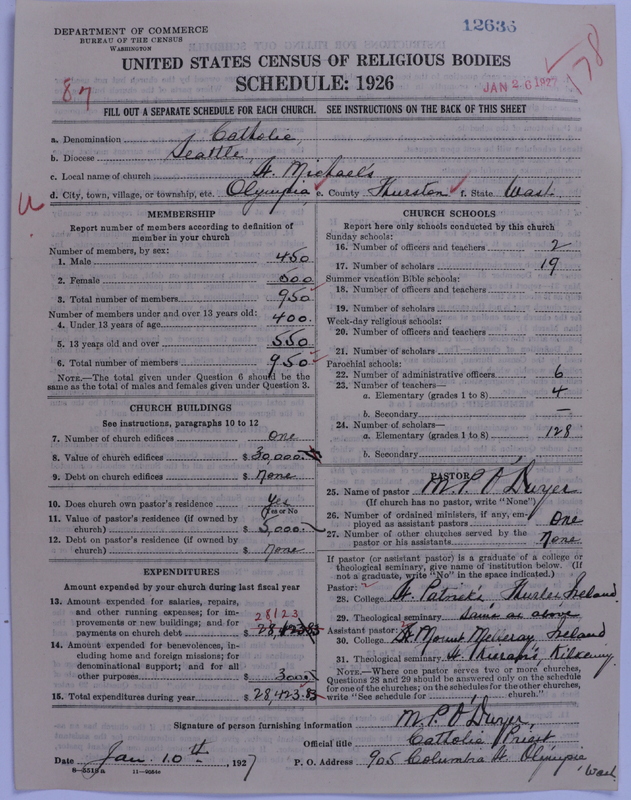 DEPARTMENT OF COMMERCE
BUREAU OF THE CENSUS
WASHINGTON
12636
UNITED STATES CENSUS OF RELIGIOUS BODIES
SCHEDULE: 1926
JAN 26 1927
178
87
FILL OUT A SEPARATE SCHEDULE FOR EACH CHURCH. SEE INSTRUCTIONS ON THE BACK OF THIS SHEET
a. Denomination Catholic
b. Diocese Seattle
c. Local name of church St. Michael's
d. City, town, village, or township, etc. Olympia, e. County Thurston f. State Wash.
MEMBERSHIP
Report number of members according to definition of
member in your church
Number of members, by sex:
1. Male 450
2. Female 500
3. Total number of members 950
Number of members under and over 13 years old:
4. Under 13 years of age 400.
5. 13 years old and over 550
6. Total number of members 950
NOTE.—The total given under Question 6 should be the
same as the total of males and females given under Question 3.
CHURCH BUILDINGS
See instructions, paragraphs 10 to 12
7. Number of church edifices One
8. Value of church edifices $ 30,000.
9. Debt on church edifices $ None
10. Does church own pastor's residence Yes
Yes or No
11. Value of pastor's residence (if owned by
church) $ 5,000.
12. Debt on pastor's residence (if owned by
church) $ None
EXPENDITURES
Amount expended by your church during last fiscal year
13. Amount expended for salaries, repairs,
and other running expenses; for im-
provements or new buildings; and for
payments on church debt $ 28,123
14. Amount expended for benevolences, in-
cluding home and foreign missions; for
denominational support; and for all
other purposes $ 300
15. Total expenditures during year $ 28,423.83
CHURCH SCHOOLS
Report here only schools conducted by this church
Sunday schools:
16. Number of officers and teachers 2
17. Number of scholars 19
Summer vacation Bible schools:
18. Number of officers and teachers
19. Number of scholars
Week-day religious schools:
20. Number of officers and teachers
21. Number of scholars
Parochial schools:
22. Number of administrative officers 6
23. Number of teachers—
a. Elementary (grades 1 to 8) 4
b. Secondary —
24. Number of scholars—
a. Elementary (grades 1 to 8) 128
b. Secondary
PASTOR
25. Name of pastor M. P. O'Dwyer
(If church has no pastor, write "None")
26. Number of ordained ministers, if any, em-
ployed as assistant pastors One
27. Number of other churches served by the
pastor or his assistants None
If pastor (or assistant pastor) is a graduate of a college or
theological seminary, give name of institution below. (If
not a graduate, write "No" in the space indicated.)
Pastor:
28. College St. Patrick's Thurles Ireland
29. Theological seminary Same as above
Assistant pastor:
30. College Mount Melleray, Ireland
31. Theological seminary St. Kieran's, Kilkenny.
NOTE.—Where one pastor serves two or more churches,
Questions 28 and 29 should be answered only on the schedule
for one of the churches; on the schedules for the other churches,
write "See schedule for church."
Signature of person furnishing information M. P. O'Dwyer,
Official title Catholic Priest
Date Jan. 10th, 1927 P. O. Address 905 Columbia St. Olympia, Wash.
8—5518 a 11—9054